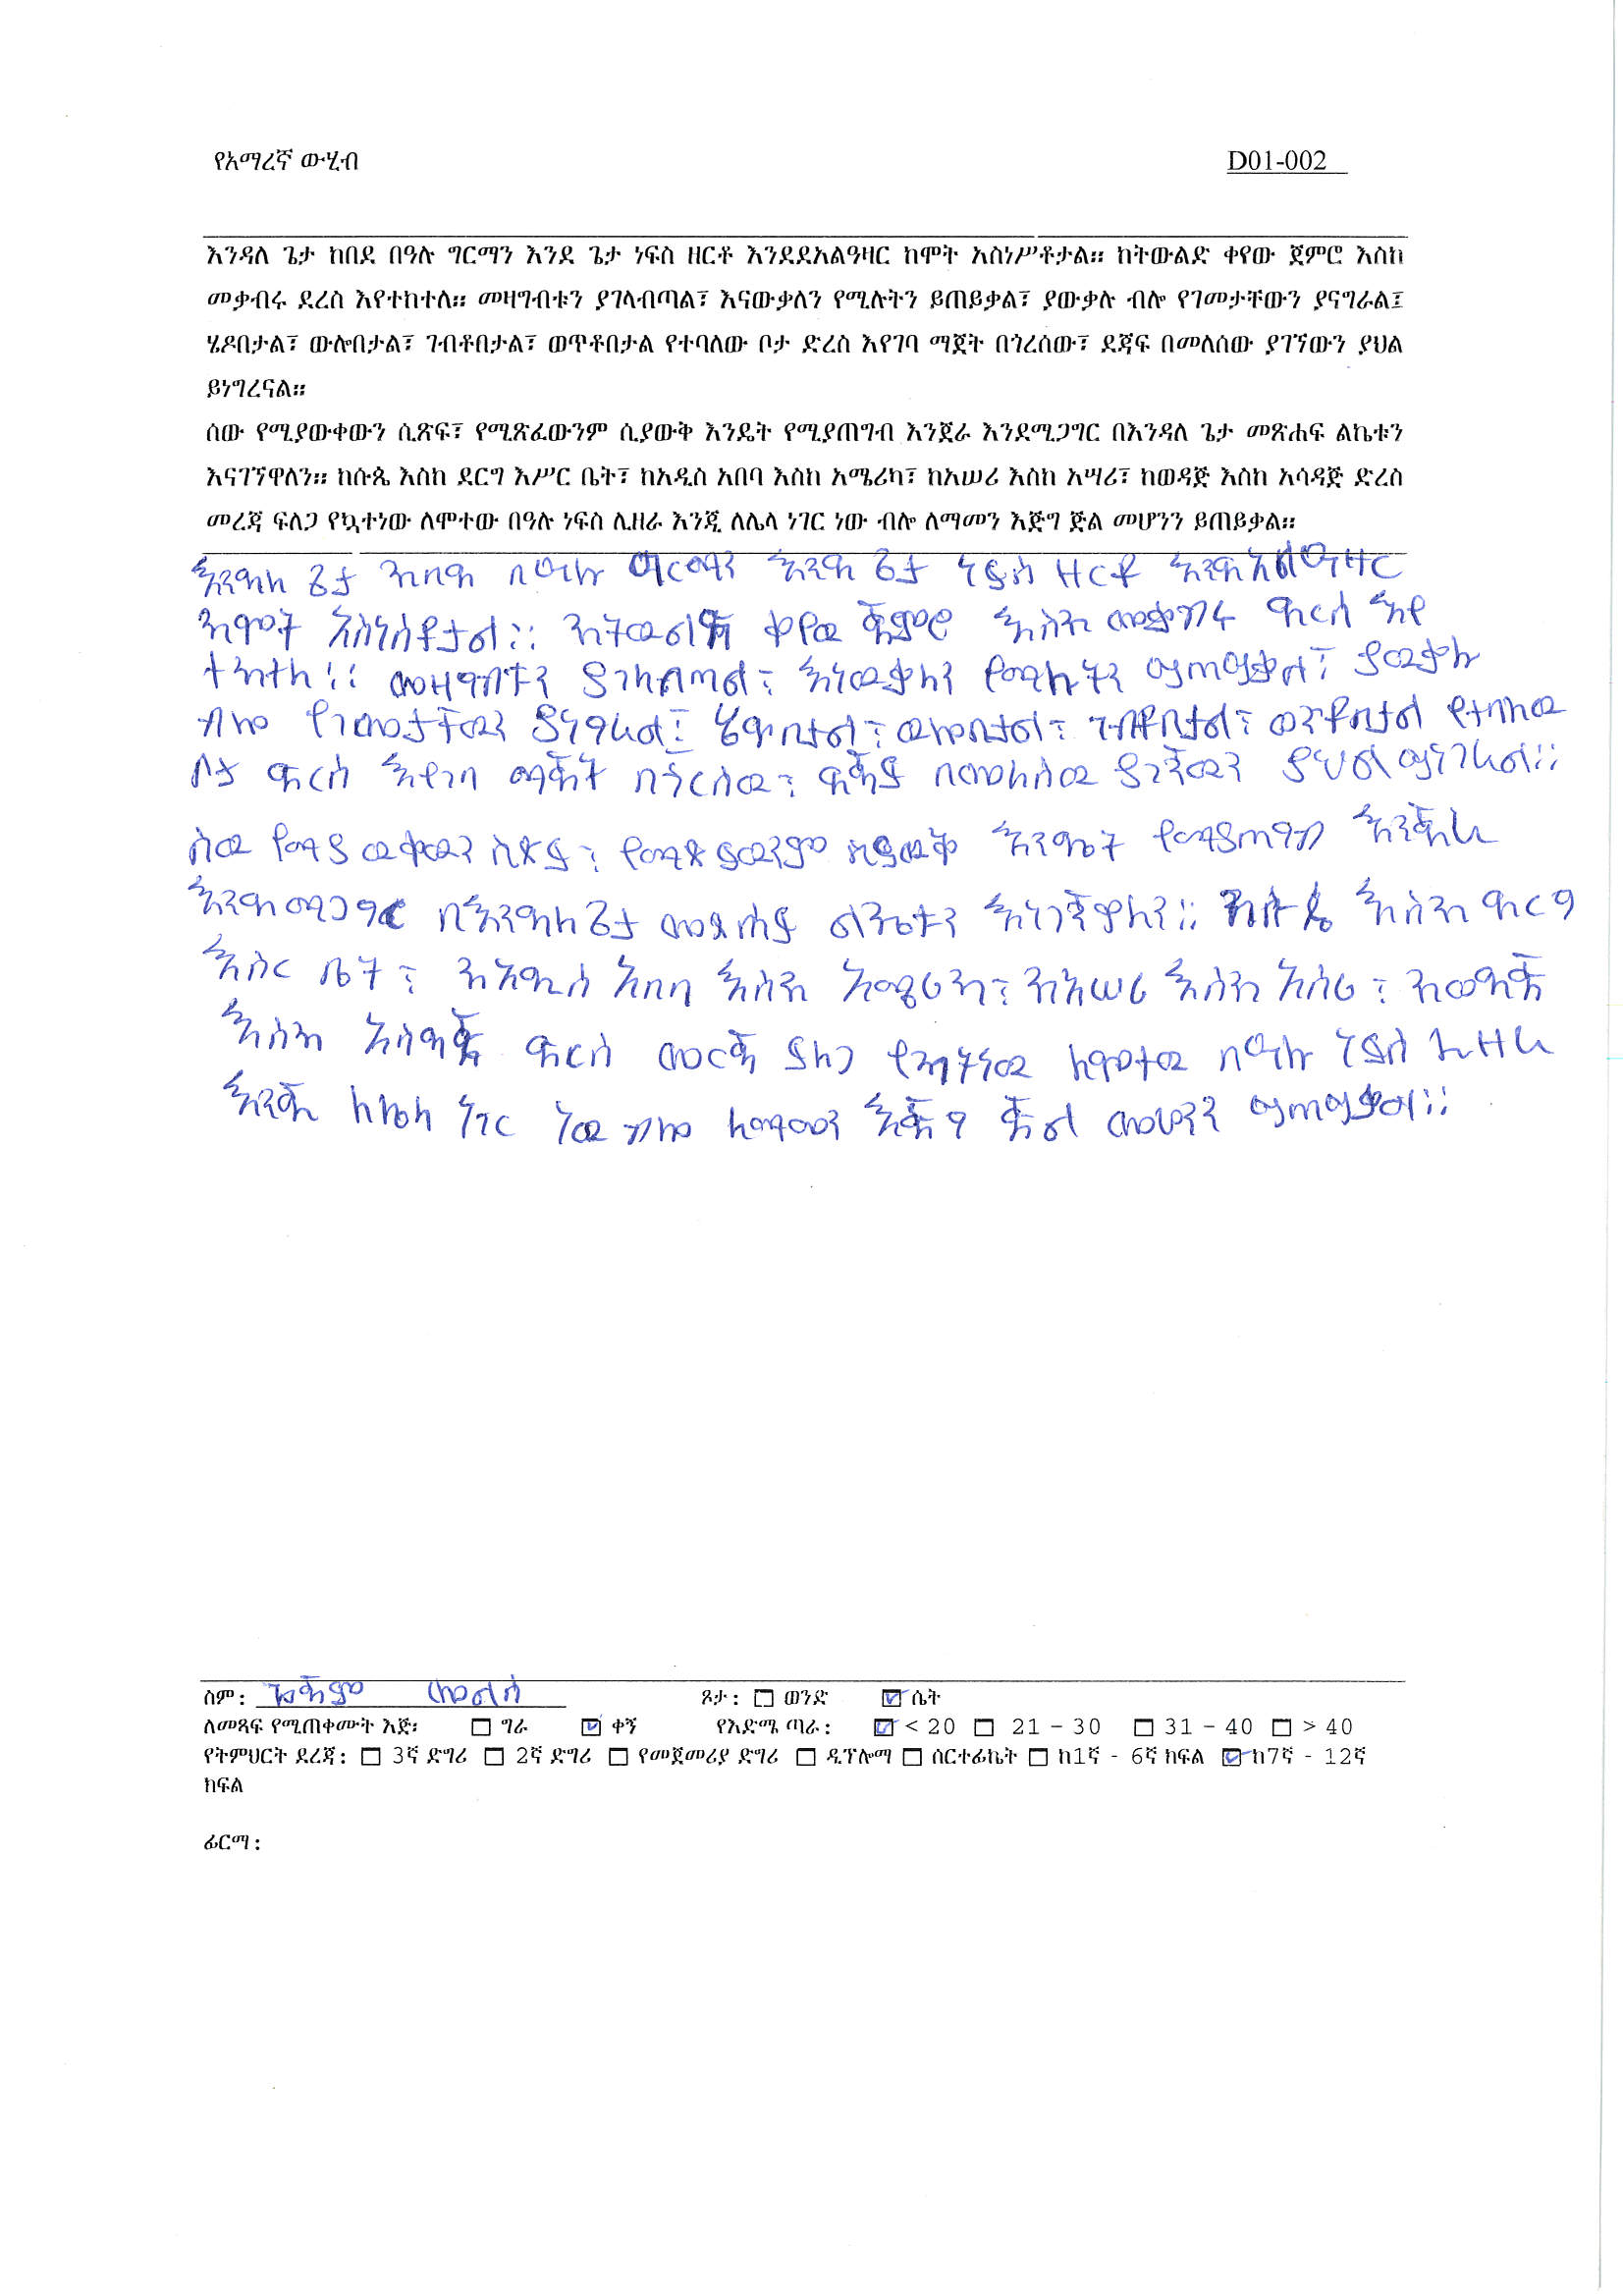 የአማረኛ ውሂብ D01-002
እንዳለ ጌታ ከበደ በዓሉ ግርማን እንደ ጌታ ነፍስ ዘርቶ እንደደአልዓዛር ከሞት አስነሥቶታል። ከትውልድ ቀየው ጀምሮ እስከ
መቃብሩ ደረስ እየተከተለ። መዛግብቱን ያገላብጣል፣ እናውቃለን የሚሉትን ይጠይቃል፣ ያውቃሉ ብሎ የገመታቸውን ያናግራል፤
ሄዶበታል፣ ውሎበታል፣ ገብቶበታል፣ ወጥቶበታል የተባለው ቦታ ድረስ እየገባ ማጀት በጎረሰው፣ ደጃፍ በመለሰው ያገኘውን ያህል
ይነግረናል።
ሰው የሚያውቀውን ሲጽፍ፣ የሚጽፈውንም ሲያውቅ እንዴት የሚያጠግብ እንጀራ እንደሚጋግር በእንዳለ ጌታ መጽሐፍ ልኬቱን
እናገኘዋለን። ከሱጴ እስከ ደርግ እሥር ቤት፣ ከአዲስ አበባ እስከ አሜሪካ፣ ከአሠሪ እስከ አሣሪ፣ ከወዳጅ እስከ አሳዳጅ ድረስ
መረጃ ፍለጋ የኳተነው ለሞተው በዓሉ ነፍስ ሊዘራ እንጂ ለሌላ ነገር ነው ብሎ ለማመን እጅግ ጅል መሆንን ይጠይቃል።
እንዳለ ጌታ ከበደ በዓሉ ግርማን እንደ ጌታ ነፍስ ዘርቶ እንደአልዓዛር
ከሞት አስነስቶታል። ከትውልድ ቀየው ጀምሮ እስከ መቃብሩ ደርስ እየ
ተከተለ። መዛግብቱን ያገላብጣል፣ እነውቃለን የሚሉትን ይጠይቃል፣ ያውቃሉ
ብሎ የገመታቸውን ያነግራል፤ ሄዶበታል፣ ውሎበታል፣ ገብቶበታል፣ ወጥቶበታል የተባለው
ቦታ ድርስ እየገባ ማጀት በጎርሰው፣ ደጃፍ በመለሰው ያገኘውን ያህል ይነገራል።
ሰው የሚያውቀውን ሲጽፍ፣ የሚጽፍውንም ሲያውቅ እንዴት የሚያጠግብ እንጀራ
እንደሚጋግር በእንዳለ ጌታ መጽሐፍ ልኬቱን እነገኘዋለን። ከሱጴ እስከ ደርግ
እስር ቤት፣ ከአዲስ አበባ እስከ አሜሪካ፣ ከአሠሪ እስከ አሰሪ፣ ከወዳጅ
እስከ አሳዳጅ ድርስ መርጃ ፍለጋ የኳተነው ለሞተው በዓሉ ነፍስ ሊዘራ
እንጂ ለሌላ ነገር ነው ብሎ ለማመን እጅግ ጅል መሆንን ይጠይቃል።
ስም: መልስ ጾታ: ወንድ ሴት
ለመጻፍ የሚጠቀሙት እጅ፡ ግራ ቀኝ የእድሜ ጣራ: < 20 21 – 30 31 – 40 > 40
የትምህርት ደረጃ: 3ኛ ድግሪ 2ኛ ድግሪ የመጀመሪያ ድግሪ ዲፕሎማ ሰርተፊኬት ከ1ኛ - 6ኛ ክፍል ከ7ኛ - 12ኛ
ክፍል
ፊርማ: